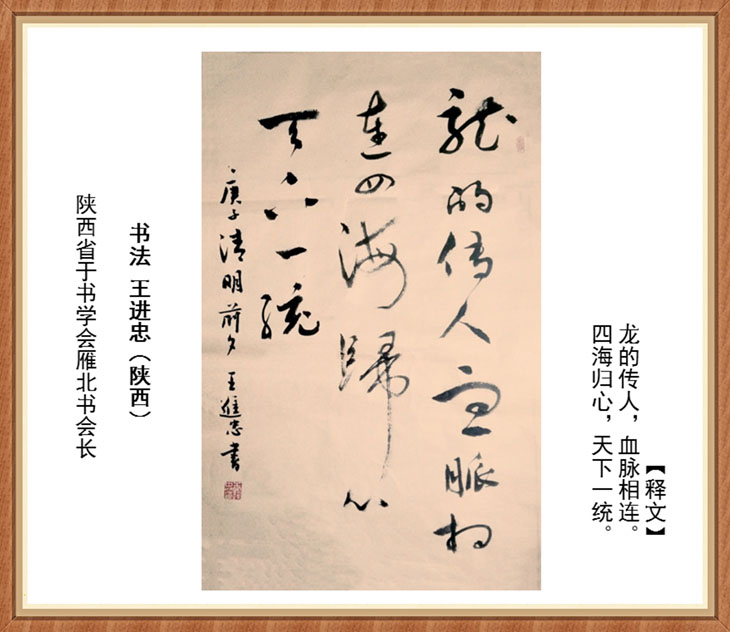 【释文】
龙的传人，血脉相连。
四海归心，天下一统。
龍的传人血脈相
連四海歸心
天下一統
庚子清明前夕王進忠書
书法 王进忠（陕西）
陕西省于书学会雁北书会长